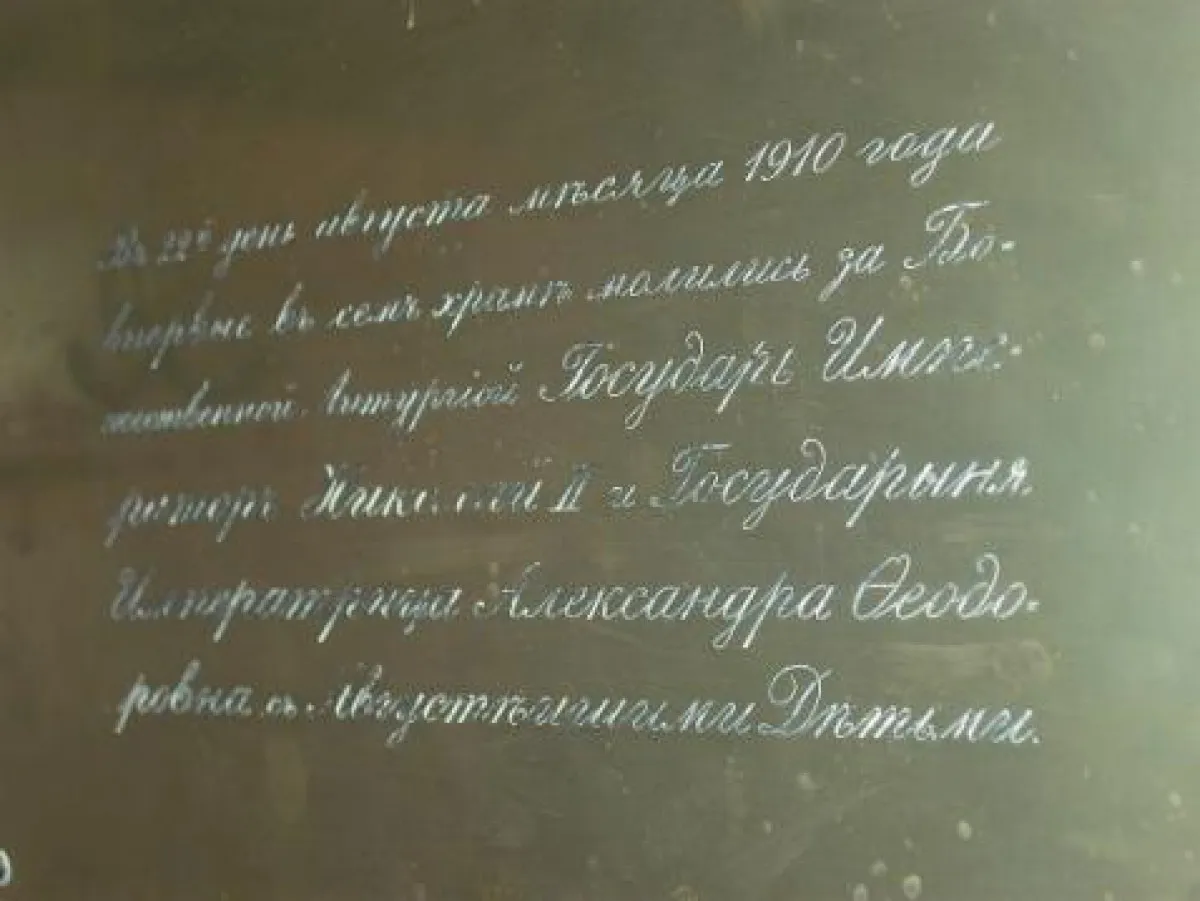 Въ 22й день августа мѣсяца 1910 года
впервые въ семъ храмѣ молились за Бо-
жественной литургіей Государь Импе-
раторъ Николай II и Государыня
Императрица Александра Ѳеодо-
ровна съ Августѣйшими Дѣтьми.